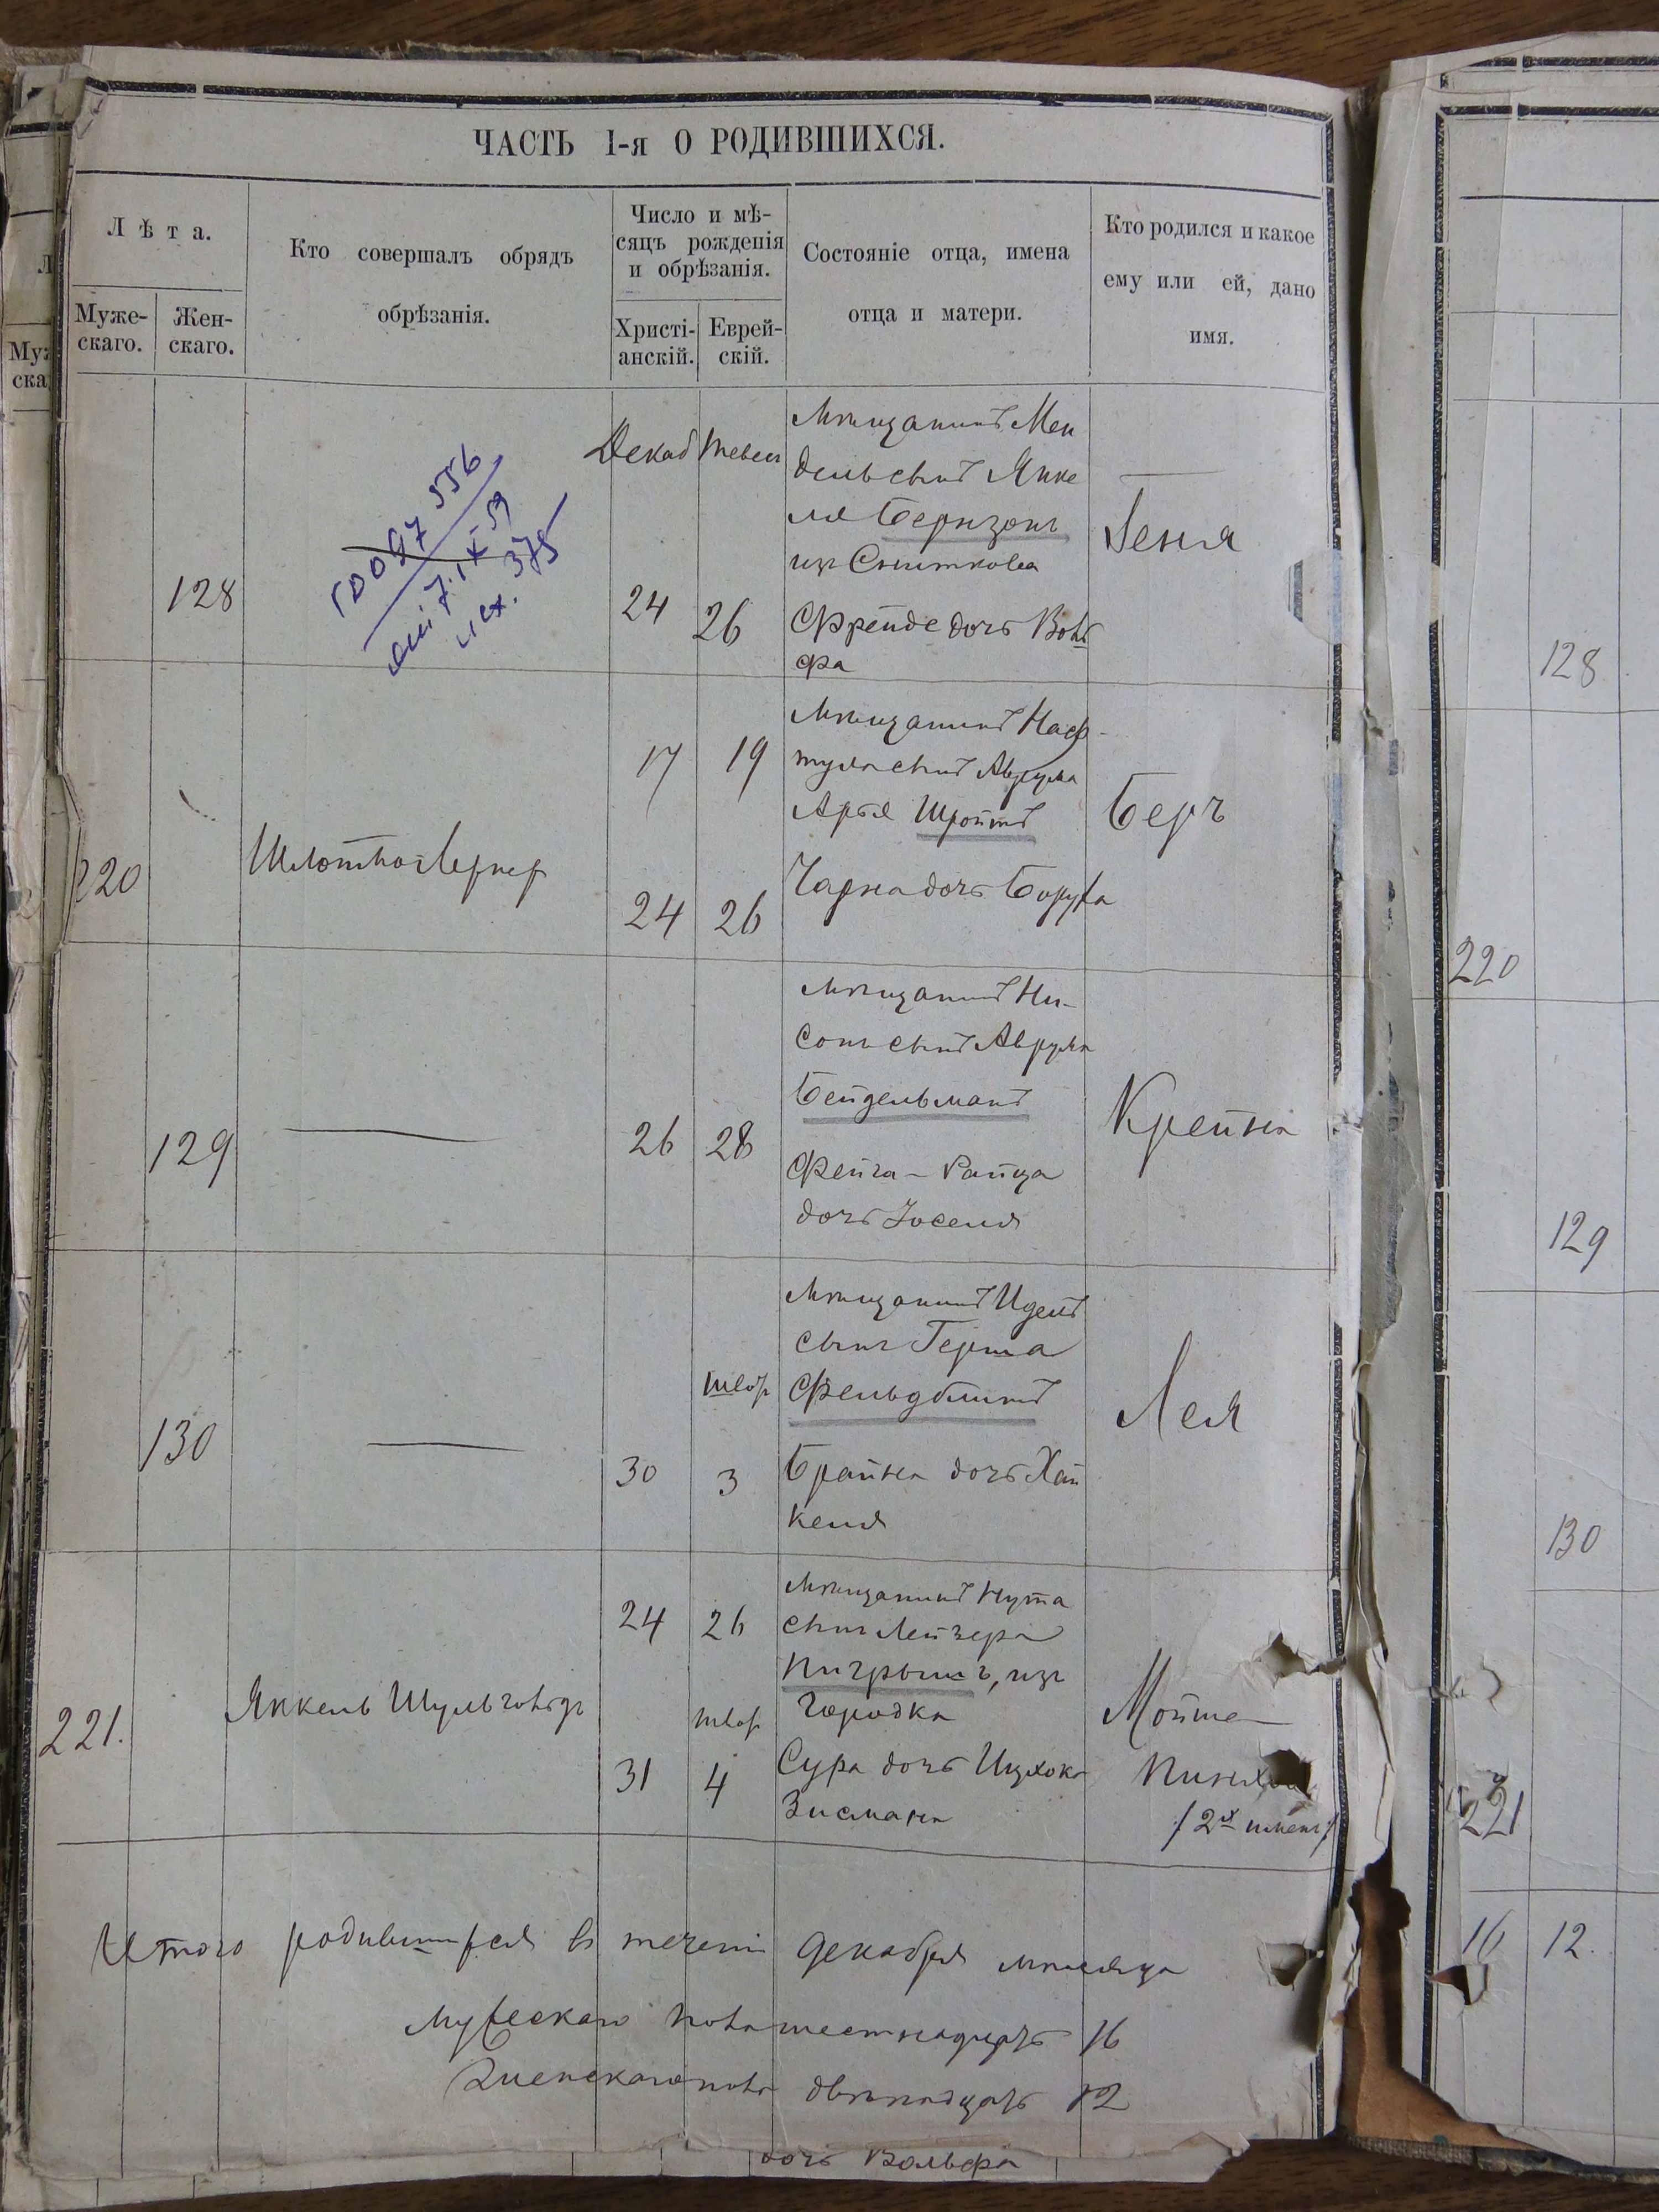 ЧАСТЬ 1-я О РОДИВШИХСЯ.
Лѣта.
Муже-
скаго.
Жен-
скаго.
Кто совершалъ обрядъ
обрѣзанія.
Число и мѣ-
сяцъ рожденія
и обрѣзанія.
Христі-
анскій.
Еврей-
скій.
Состояніе отца, имена
отца и матери.
Кто родился и какое
ему или ей, дано
имя.
128
Декаб
24
26
Мѣщанинъ Мен
дель сынъ Янке
ля Беризонъ
изъ Сниткова
Фрейде дочь Воль
фа
Геня
исх. 375
220
Шлоймо Лернер
17
19
24
26
Мѣщанинъ Наф-
тула сынъ Аврума
Арья Шройтъ
Чарна дочь Боруха
Беръ
129
26
28
Мѣщанинъ Ни-
сонъ сынъ Аврума
Бейдельманъ
Фейга-Райца
дочь Іоселя
Крейна
130
30
3
Мѣщанинъ Идель
сынъ Герша
Фельдблитъ
Брайна дочь Хаи
келя
Лея
221.
Янкель Шульговдъ
24
26
31
4
Мѣщанинъ Нута
сынъ Лейзера
Пигрышъ, изъ
Городка
Сура дочь Ицхока
Зисмана
Мойше
/2х именъ/
Итого родившихся въ теченіи декабря мѣсяца
мужескаго пола шестнадцать 16
Женскаго пола двѣнадцать 12
дочь Вольфа
128
220
129
130
221
16
12.